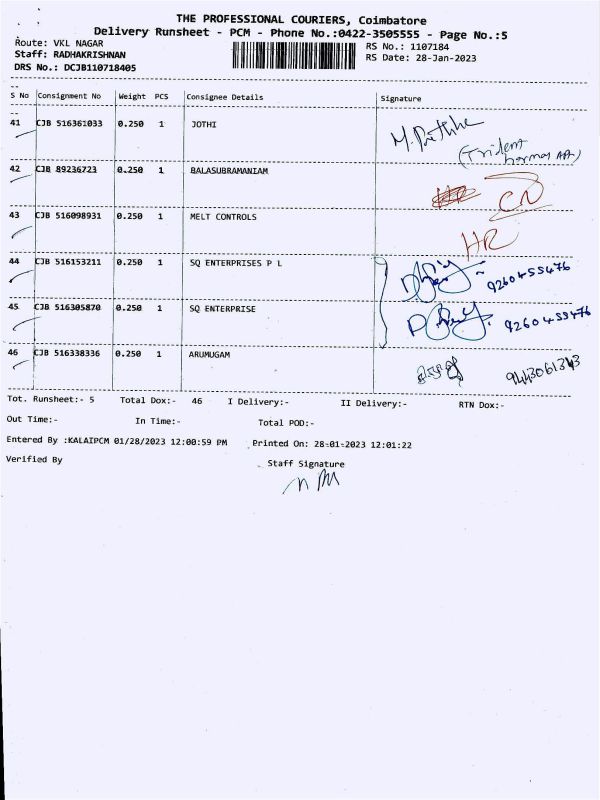 THE PROFESSIONAL COURIERS, Coimbatore
Delivery Runsheet - PCM - Phone No.:0422-3505555 - Page No.:5
Route: VKL NAGAR
RS No.: 1107184
Staff: RADHAKRISHNAN
RS Date: 28-Jan-2023
DRS No.: DCJB110718405
S No Consignment No Weight PCS Consignee Details Signature
41 CJB 516361033 0.250 1 JOTHI M. Prethika
(Trident homes APt)
42 CJB 89236723 0.250 1 BALASUBRAMANIAM CN
43 CJB 516098931 0.250 1 MELT CONTROLS HR
44 CJB 516153211 0.250 1 SQ ENTERPRISES P L 9260455476
45 CJB 516305870 0.250 1 SQ ENTERPRISE 9260455476
46 CJB 516338336 0.250 1 ARUMUGAM 9443061343
Tot. Runsheet:- 5 Total Dox:- 46 I Delivery:- II Delivery:- RTN Dox:-
Out Time:- In Time:- Total POD:-
Entered By :KALAIPCM 01/28/2023 12:00:59 PM Printed On: 28-01-2023 12:01:22
Verified By Staff Signature